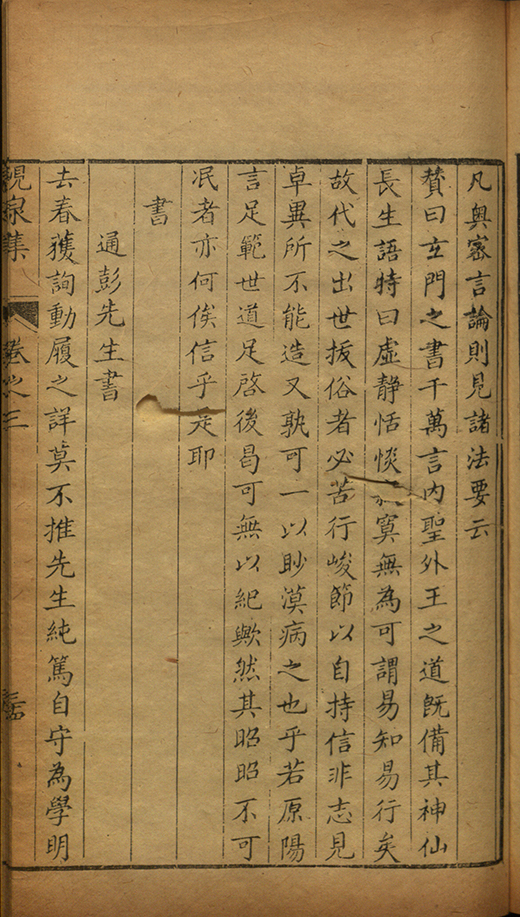 凡奥密言論則見諸法要云
贊曰玄門之書千萬言内聖外王之道旣備其神仙
長生語特曰虛静恬惔寞無為可謂易知易行矣
故代之出世扳俗者必苦行峻節以自持信非志見
卓異所不能造又孰可一以眇漠病之也乎若原陽
言足範世道足啓後曷可無以紀歟然其昭昭不可
泯者亦何俟信乎是耶
書
通彭先生書
去春獲詢動履之詳莫不推先生純篤自守為學明
峴泉集
卷之三